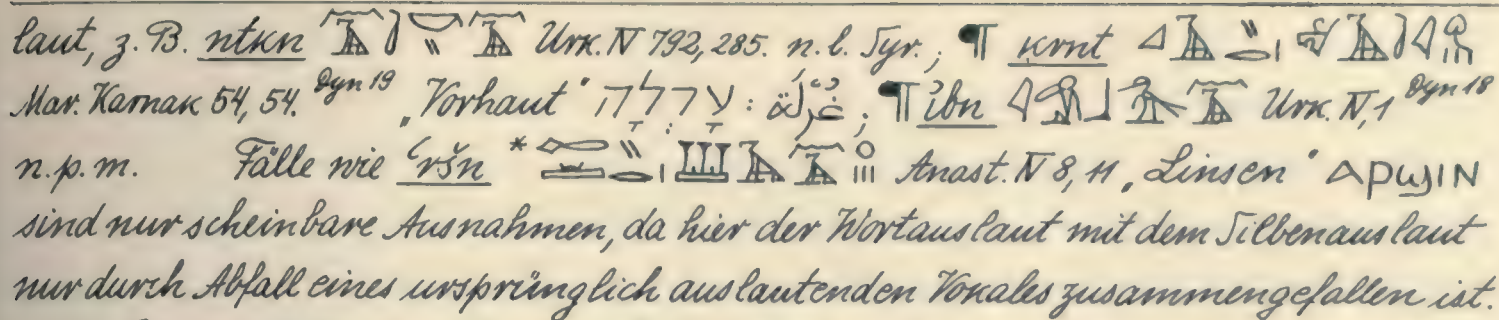 laut, z. B. ntkn Urk. IV 792, 285. n. l. Syr.; ¶ krnt
Mar. Karnak 54, 54. Dyn 19 „Vorhaut“ עָרְלָה : غُرْلَة ; ¶ ỉbn Urk. IV, 1 Dyn 18
n. p. m. Fälle wie ʿršn * Anast. IV 8, 11 „Linsen“ ⲁⲣϣⲓⲛ
sind nur scheinbare Ausnahmen, da hier der Wortauslaut mit dem Silbenauslaut
nur durch Abfall eines ursprünglich auslautenden Vokales zusammengefallen ist.